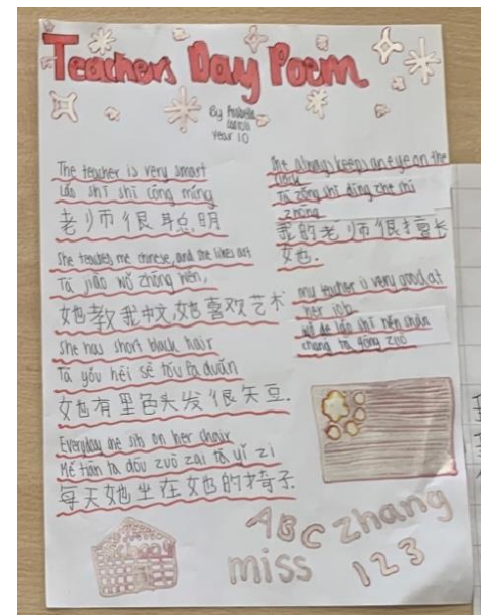 Teachers Day Poem
By
Year 10
The teacher is very smart
Lǎo shī shì cōng míng
老师很聪明
She teaches me chinese, and she likes art
Tā jiāo wǒ zhōng
她教我中文,她喜欢艺术
She has short black hair
Tā yǒu hēi sè tóu fa duǎn
她有里色头发很矢豆.
Everyday she sits on her chair
Měi tiān tā dōu zuò zai tā yǐ zi
每天她坐在她的椅子.
She always keeps an eye on the
clock
Tā zǒng shì dīng zhe shí
zhōng
我的老师很擅长
她.
my teacher is very good at
her job
wǒ de lǎo shī hěn shàn
cháng tā gōng zuò
ABC zhang
miss 123